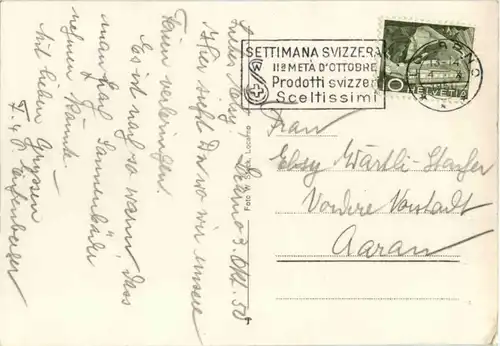 Locarno 3. Okt. 50
Hier siehst Du wo wir unsere
Ferien verbringen.
Es ist noch so warm, dass
man Sonnenbäder
nehmen könnte.
Mit lieben Grüssen
Foto Locarno
SETTIMANA SVIZZERA
IIª METÀ D'OTTOBRE
Prodotti svizzeri
Sceltissimi
10
HELVETIA
Frau
Elsy Wärtli-
Vordere Vorstadt
Aarau